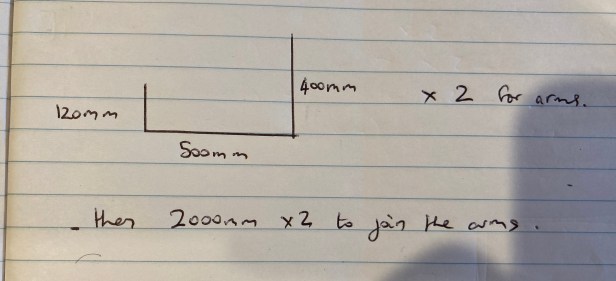 400mm
x 2 for arms.
120mm
500mm
- then 2000mm x2 to join the arms.